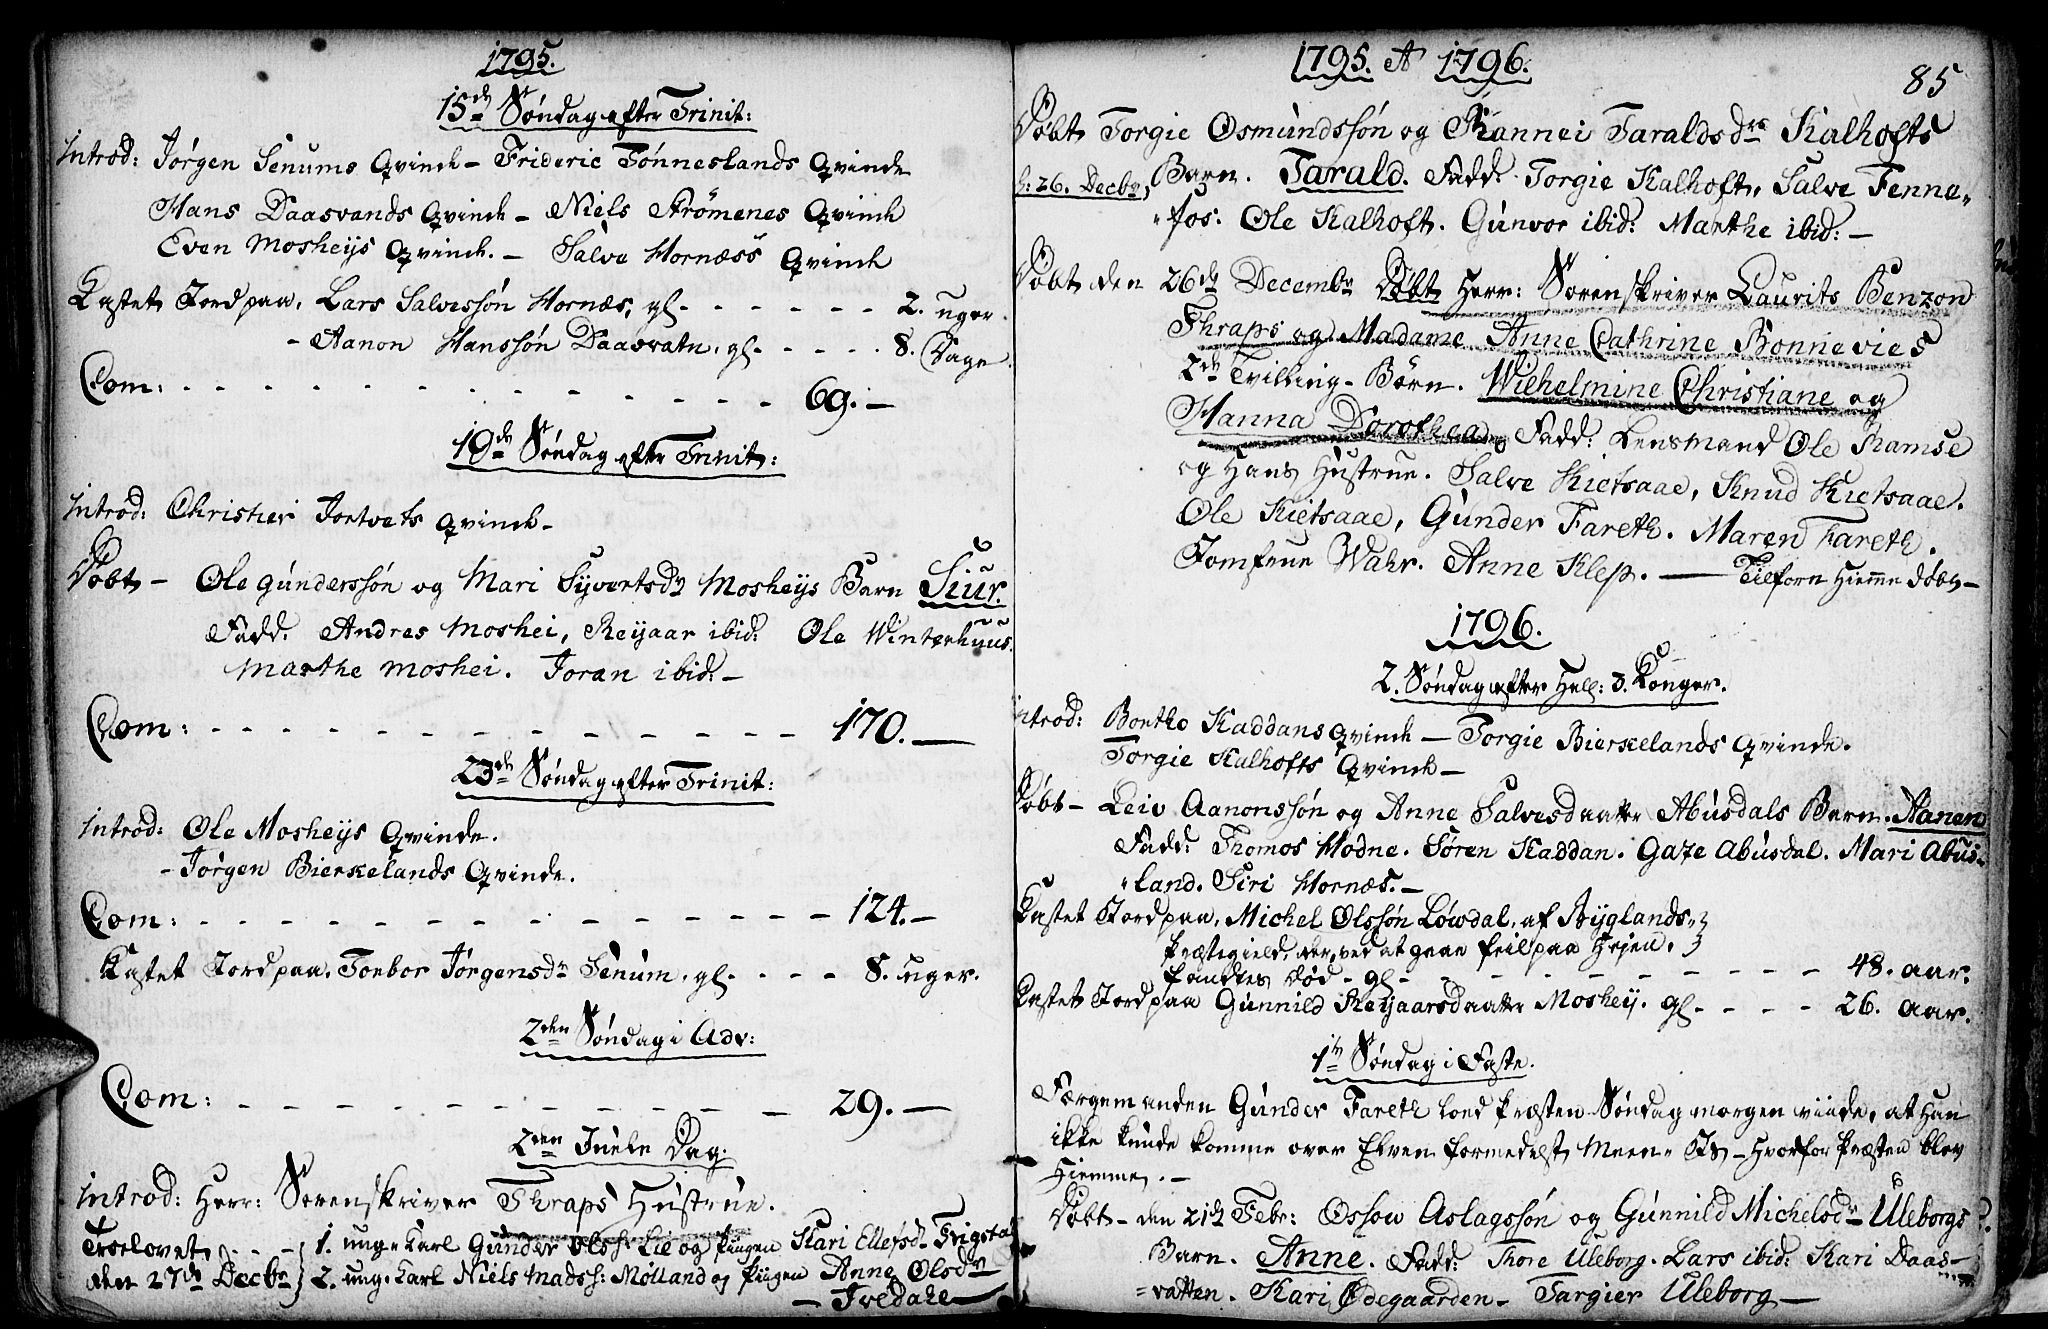 1795.
15de Søndag efter Trinit:
Introd: Jørgen Senums Qvinde – Frideric Tønneslands Qvinde
Hans Daasvands Qvinde – Niels Strømenes Qvinde
Even Mosheijs Qvinde. – Salve Hornæss Qvinde
Kastet Jord paa, Lars Salvessøn Hornæs, gl. - - - - - - 2. uger.
- Aanon Hanssøn Daasvatn, gl. - - - - - 8. Dage.
Com: - - - - - - - - - - - 69. –
19de Søndag efter Trinit:
Introd: Christier Jortvets Qvinde –
Døbt – Ole Gunderssøn og Mari Syvertsdr Mosheijs Barn Siur.
Fadd. Andres Moshei, Reijaar ibid: Ole Winterhuus.
Marthe Moshei. Joran ibid: –
Com: - - - - - - - - - - - 170. –
23de Søndag efter Trinit:
Introd: Ole Mosheijs Qvinde.
- Jørgen Bierkelands Qvinde.
Com: - - - - - - - - - - - 124. –
Kastet Jord paa, Torbor Jørgensdr Senum, gl. - - - - 8. uger.
2den Søndag i Adv:
Com: - - - - - - - - - - - 29. –
2den Juele Dag.
Introd: Herr: Sorenskriver Thraps Hustrue.
Troelovet - - - 1. ung-Karl Gunder Olss: Lie og Piigen Kari Ellefsdr Frigsta
den 27de Decbr 2. ung-Karl Niels Madss: Mølland og Piigen Anne Olsdr
– Tvedahe –
1795. A 1796.
85
Døbt Torgie Osmundssøn og Rannei Taraldsdrs Kalhofts
h: 26. Decbr, Barn. Tarald. Fadd. Torgie Kalhoft, Salve Fenne-
-fos: Ole Kalhoft. Gunvor ibid: Marthe ibid: –
Døbt den 26de Decembr Døbt Herr: Sorenskriver Laurits Benzon
Thraps og Madame Anne Cathrine Bonnevies
2de Tvilling-Børn. Wilhelmine Christiane og
Hanna Dorothea, Fadd: Lensmand Ole Ramse
og Hans Hustrue. Salve Kietsaae, Knud Kietsaae.
Ole Kietsaae, Gunder Fareth. Maren Fareth.
Jomfrue Wahr. Anne Klep. – Tilforn Hiemme døbt –
1796.
2. Søndag efter Hell: 3. Konger.
Introd: Bertho Kaddans Qvinde – Torgie Bierkelands Qvinde.
Torgie Kalhofts Qvinde –
Døbt – Leiv Aanonssøn og Anne Salvesdaatter Abusdals Barn. Aanen
Fadd: Thomos Hodne. Søren Kaddan. Gaze Abusdal. Mari Abus-
-land. Siri Hornæs. –
Kastet Jord paa, Michel Olssøn Løwdal, af Byglands-
Præstegield, der, ved at gaae feil paa Hejen,
fandtes død - gl - - - - - - - - - 48. aar.
Kastet Jord paa Gunnild Reyaarsdaatter Moshey. gl. - - - - 26. aar.
1te Søndag i Faste.
Færgemanden Gunder Fareth loed Præsten Søndag morgen viide, at Han
ikke kunde komme over Elven formedelst Meen-Iis – Hvorfor Præsten blev
Hiemme. –
Døbt – den 21de Febr: Ossow Aslagssøn og Gunnild Michelsdr Uleborgs
Barn. Anne. Fadd: Thore Uleborg. Lars ibid: Kari Daas-
=vatten. Kari Ødegaarden – Targier Uleborg –